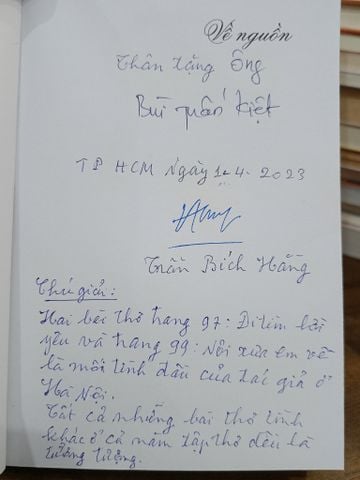 Về nguồn
Thân tặng Ông
Bùi Tuấn Kiệt
TP HCM Ngày 1-4-2023
Trần Bích Hằng
Chú giải:
Hai bài thơ trang 97: Đi tìm lời
yêu và trang 99: Nơi xưa em về
là mối tình đầu của tác giả ở
Hà Nội.
Tất cả những bài thơ tình
khác ở cả năm tập thơ đều là
tưởng tượng.